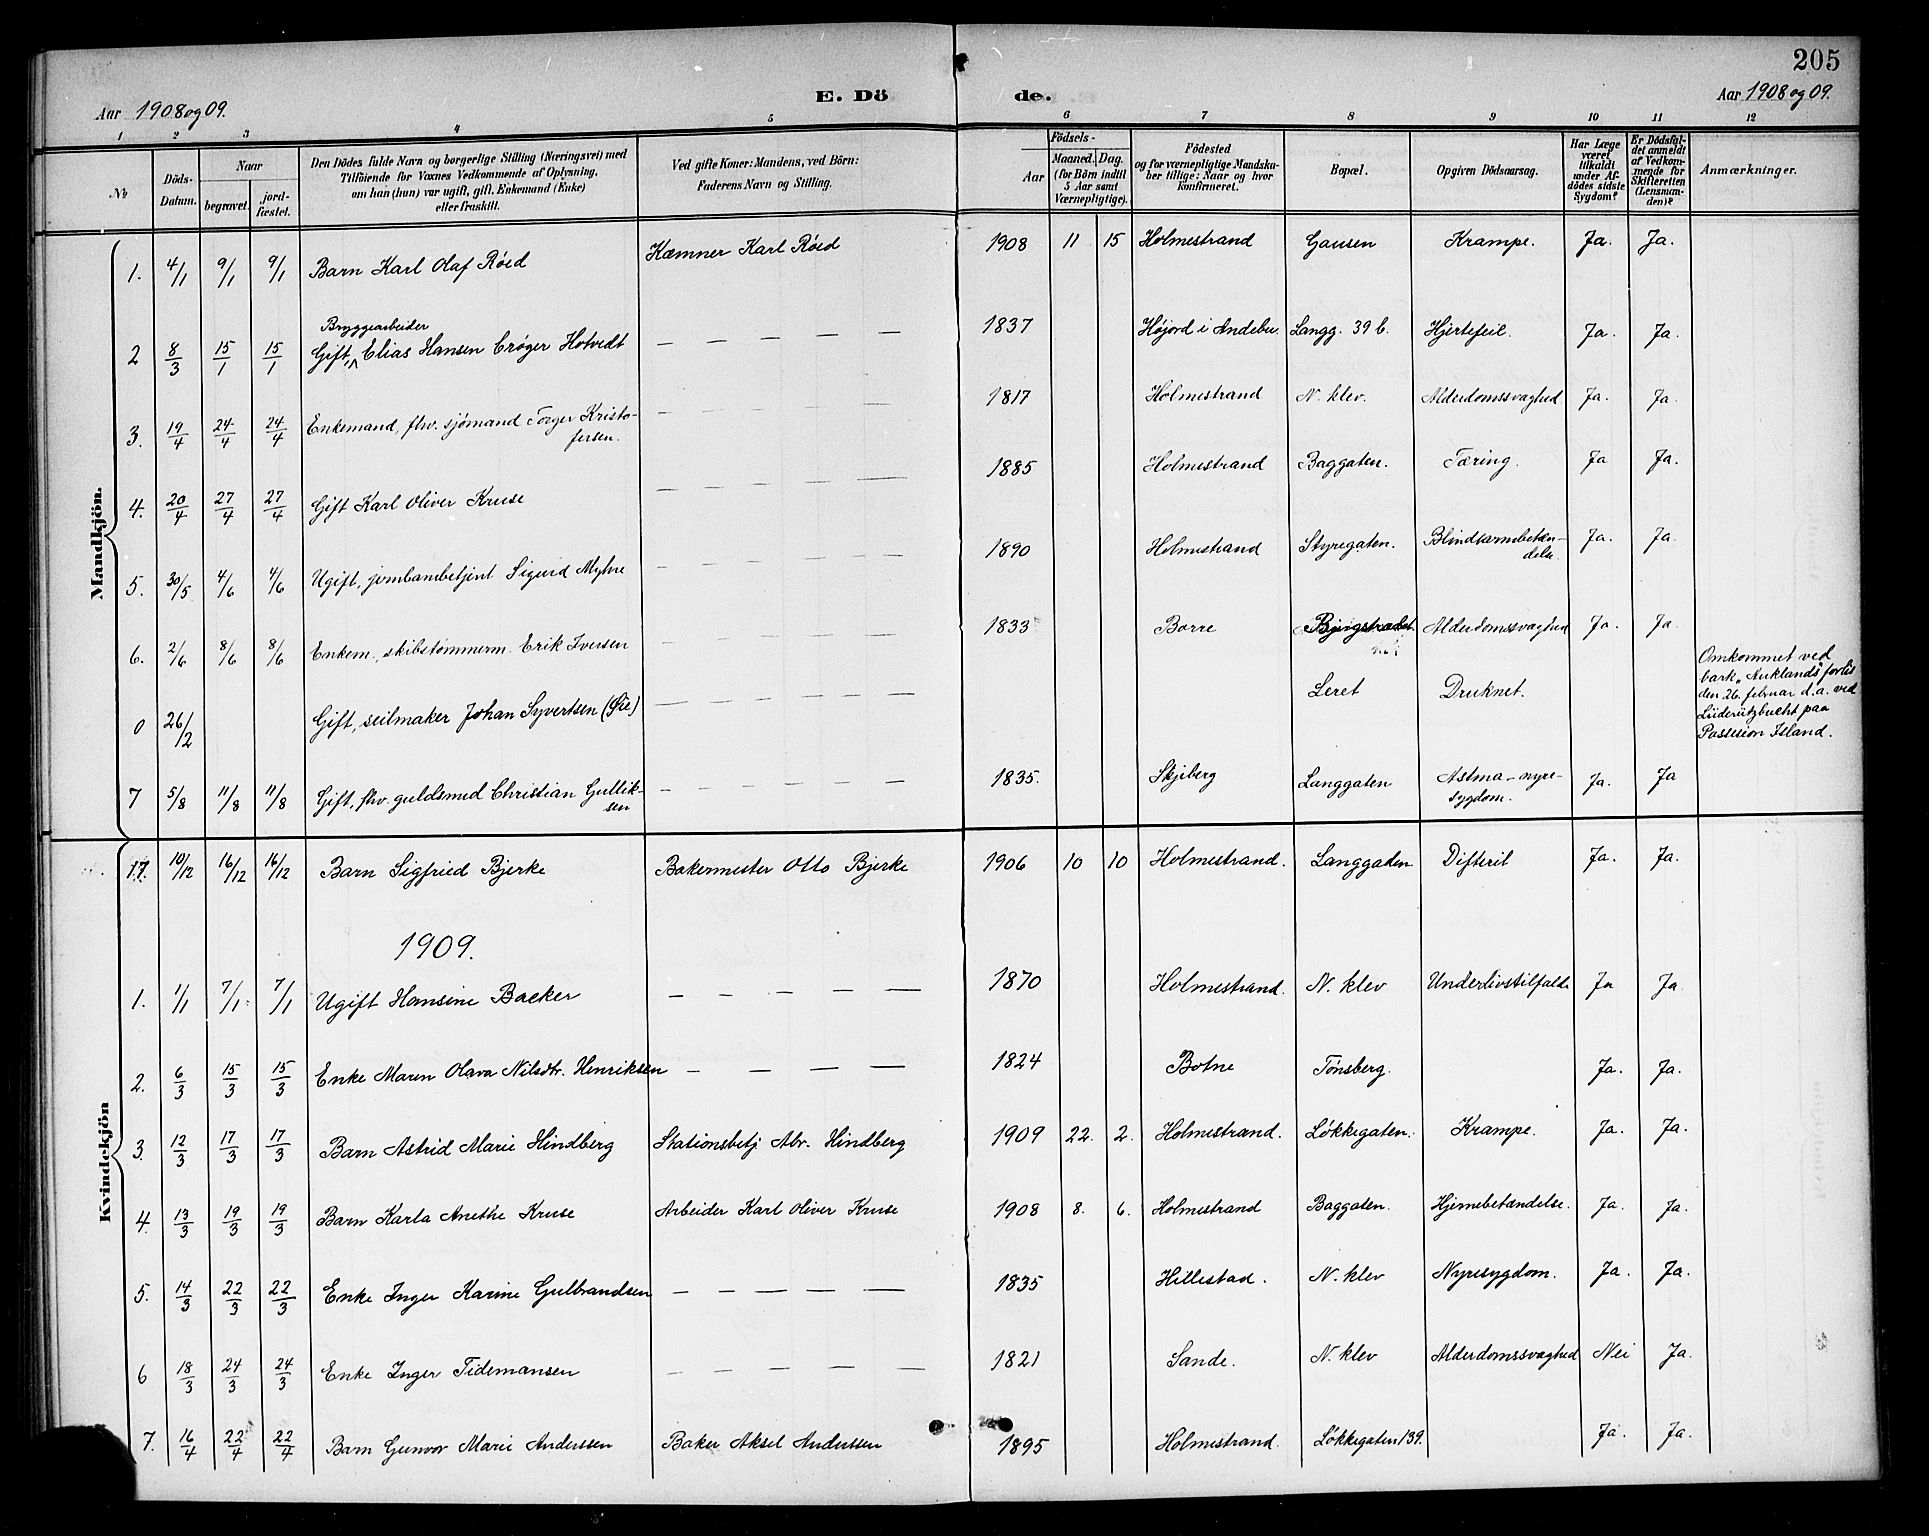 205
Aar 1908 og 09.
E. Dö
de.
Aar 1908 og 09.
1 2 3 4 5 6 7 8 9 10 11 12
№
Döds-Datum.
Naar
begravet. jordfæstet.
Den Dödes fulde Navn og borgerlige Stilling (Næringsvei) med
Tilföiende for Voxnes Vedkommende af Oplysning,
om han (hun) var ugift, gift, Enkemand (Enke)
eller fraskilt.
Ved gifte Koner: Mandens, ved Börn:
Faderens Navn og Stilling.
Födsels-
Aar
Maaned. Dag.
(for Börn indtil
5 Aar samt
Værnepligtige).
Födested
og for værnepligtige Mandskaber tillige: Naar og hvor
Konfirmeret.
Bopæl.
Opgiven Dödsaarsag.
Har Læge
været
tilkaldt
under Afdödes sidste
Sygdom?
Er Dödsfaldet anmeldt
af Vedkommende for
Skifteretten
(Lensmanden)?
Anmærkninger.
Mandkjön.
1. 4/1 9/1 9/1 Barn Karl Olaf Röed Kæmner Karl Röed 1908 11 15 Holmestrand Gausen Krampe. Ja. Ja.
Bryggearbeider
2 8/3 15/1 15/1 Gift, Elias Hansen Crøger Hotvedt — — — — — 1837 Højord i Andebu. Langg. 39 b. Hjertefeil. Ja. Ja.
3. 19/4 24/4 24/4 Enkemand, fhv. sjömand Torger Kristofersen. — — — — — 1817 Holmestrand N. klev. Alderdomssvaghed Ja. Ja.
4. 20/4 27/4 27/4 Gift Karl Oliver Kruse — — — — — 1885 Holmestrand Baggaten. Tæring. Ja Ja.
5. 30/5 4/6 4/6 Ugift, jernbanebetjent Sigurd Myhre — — — — — 1890 Holmestrand Styregaten. Blindtarmbetændelse. Ja. Ja.
6. 2/6 8/6 8/6 Enkem., skibstömmerm. Erik Iversen — — — — — 1833 Borre Alderdomssvaghed Ja. Ja.
0 26/2 Gift, seilmaker Johan Syvertsen (Øie) — — — — — Leret Druknet.
Omkommet ved
bark „Auklands" forlis
den 26. februar d.a. ved
Lüderitzbucht paa
Possesion Island.
7 5/8 11/8 11/8 Gift, fhv. guldsmed Christian Gulliksen — — — — — 1835. Skjeberg Langgaten Astma - nyresygdom. Ja. Ja
Kvindekjön
17. 10/12 16/12 16/12 Barn Sigfried Bjerke Bakermester Otto Bjerke 1906 10 10 Holmestrand. Langgaten Difterit Ja. Ja.
1909.
1. 1/1 7/1 7/1 Ugift Hansine Backer — — — — — 1870 Holmestrand. N. klev Underlivstilfælde Ja Ja.
2. 6/3 15/3 15/3 Enke Maren Olava Nilsdtr. Henriksen — — — — 1824 Botne Tønsberg. Ja. Ja.
3. 12/3 17/3 17/3 Barn Astrid Marie Hindberg Stationsbetj. Abr. Hindberg 1909 22. 2. Holmestrand. Løkkegaten. Krampe. Ja. Ja.
4. 13/3 19/3 19/3 Barn Karla Anethe Kruse Arbeider Karl Oliver Kruse 1908 8. 6. Holmestrand Baggaten. Hjernebetændelse. Ja. Ja.
5. 14/3 22/3 22/3 Enke Inger Karine Gulbrandsen — — — — — 1835 Hillestad. N. klev Nyresygdom. Ja. Ja.
6 18/3 24/3 24/3 Enke Inger Tidemansen — — — — — 1821 Sande. N. klev Alderdomssvaghed Nei Ja.
7. 16/4 22/4 22/4 Barn Gunvor Marie Anderssen Baker Aksel Anderssen 1895 Holmestrand. Løkkegaten 139. Ja. Ja.